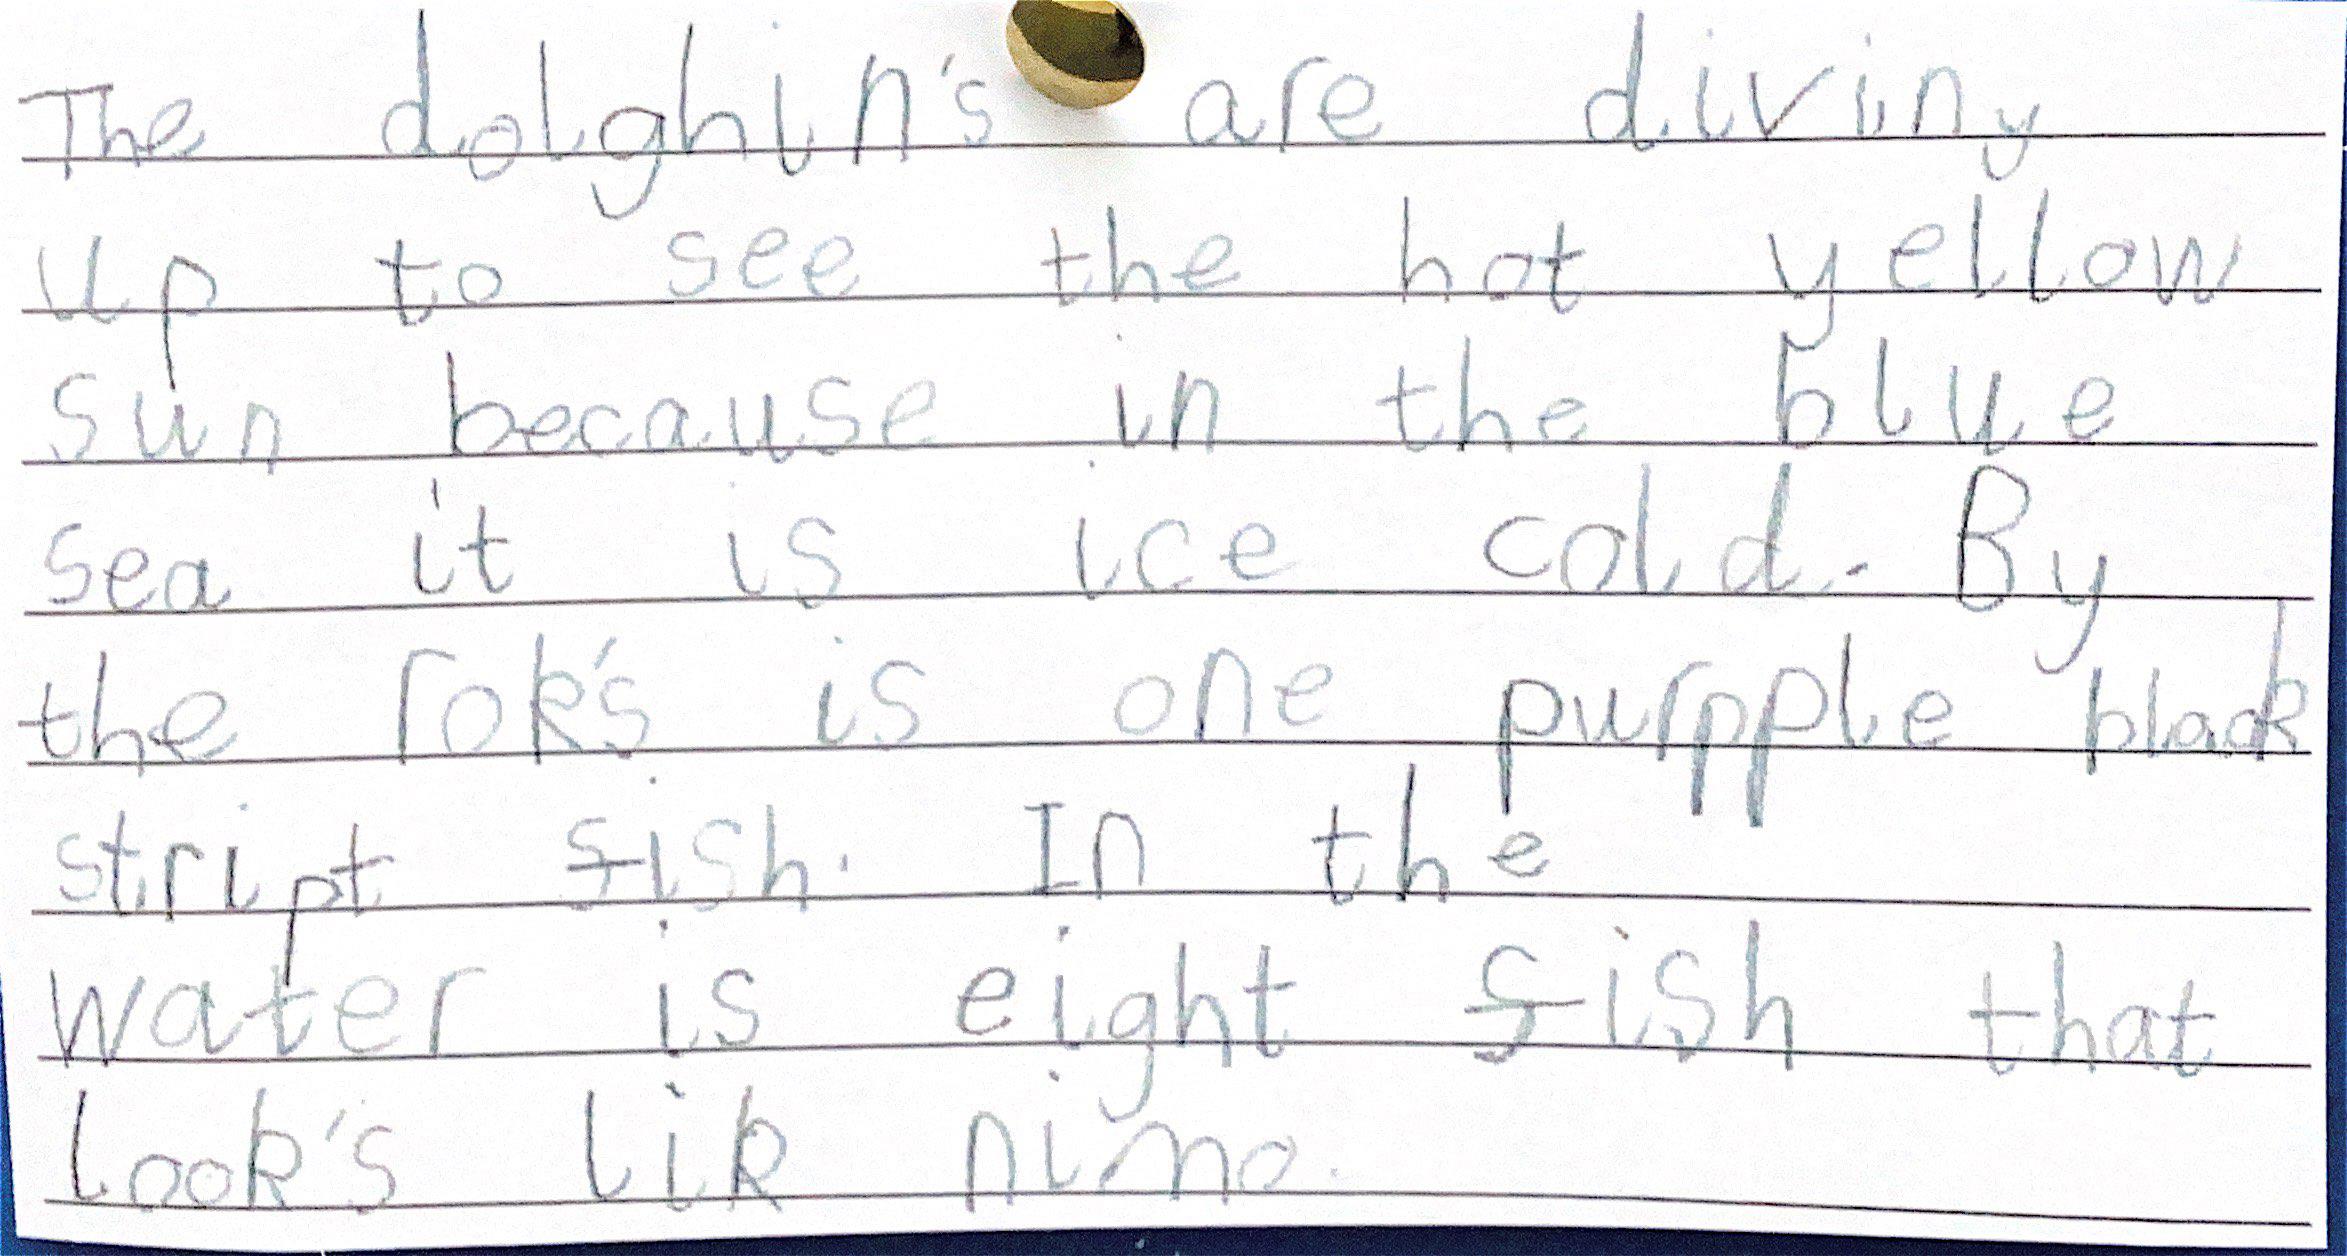 The dolghin's are diviny
up to see the hot yellow
sun because in the blue
sea it is ice cold. By
the rok's is one purpple black
stript fish. In the
water is eight fish that
look's lik nimo.